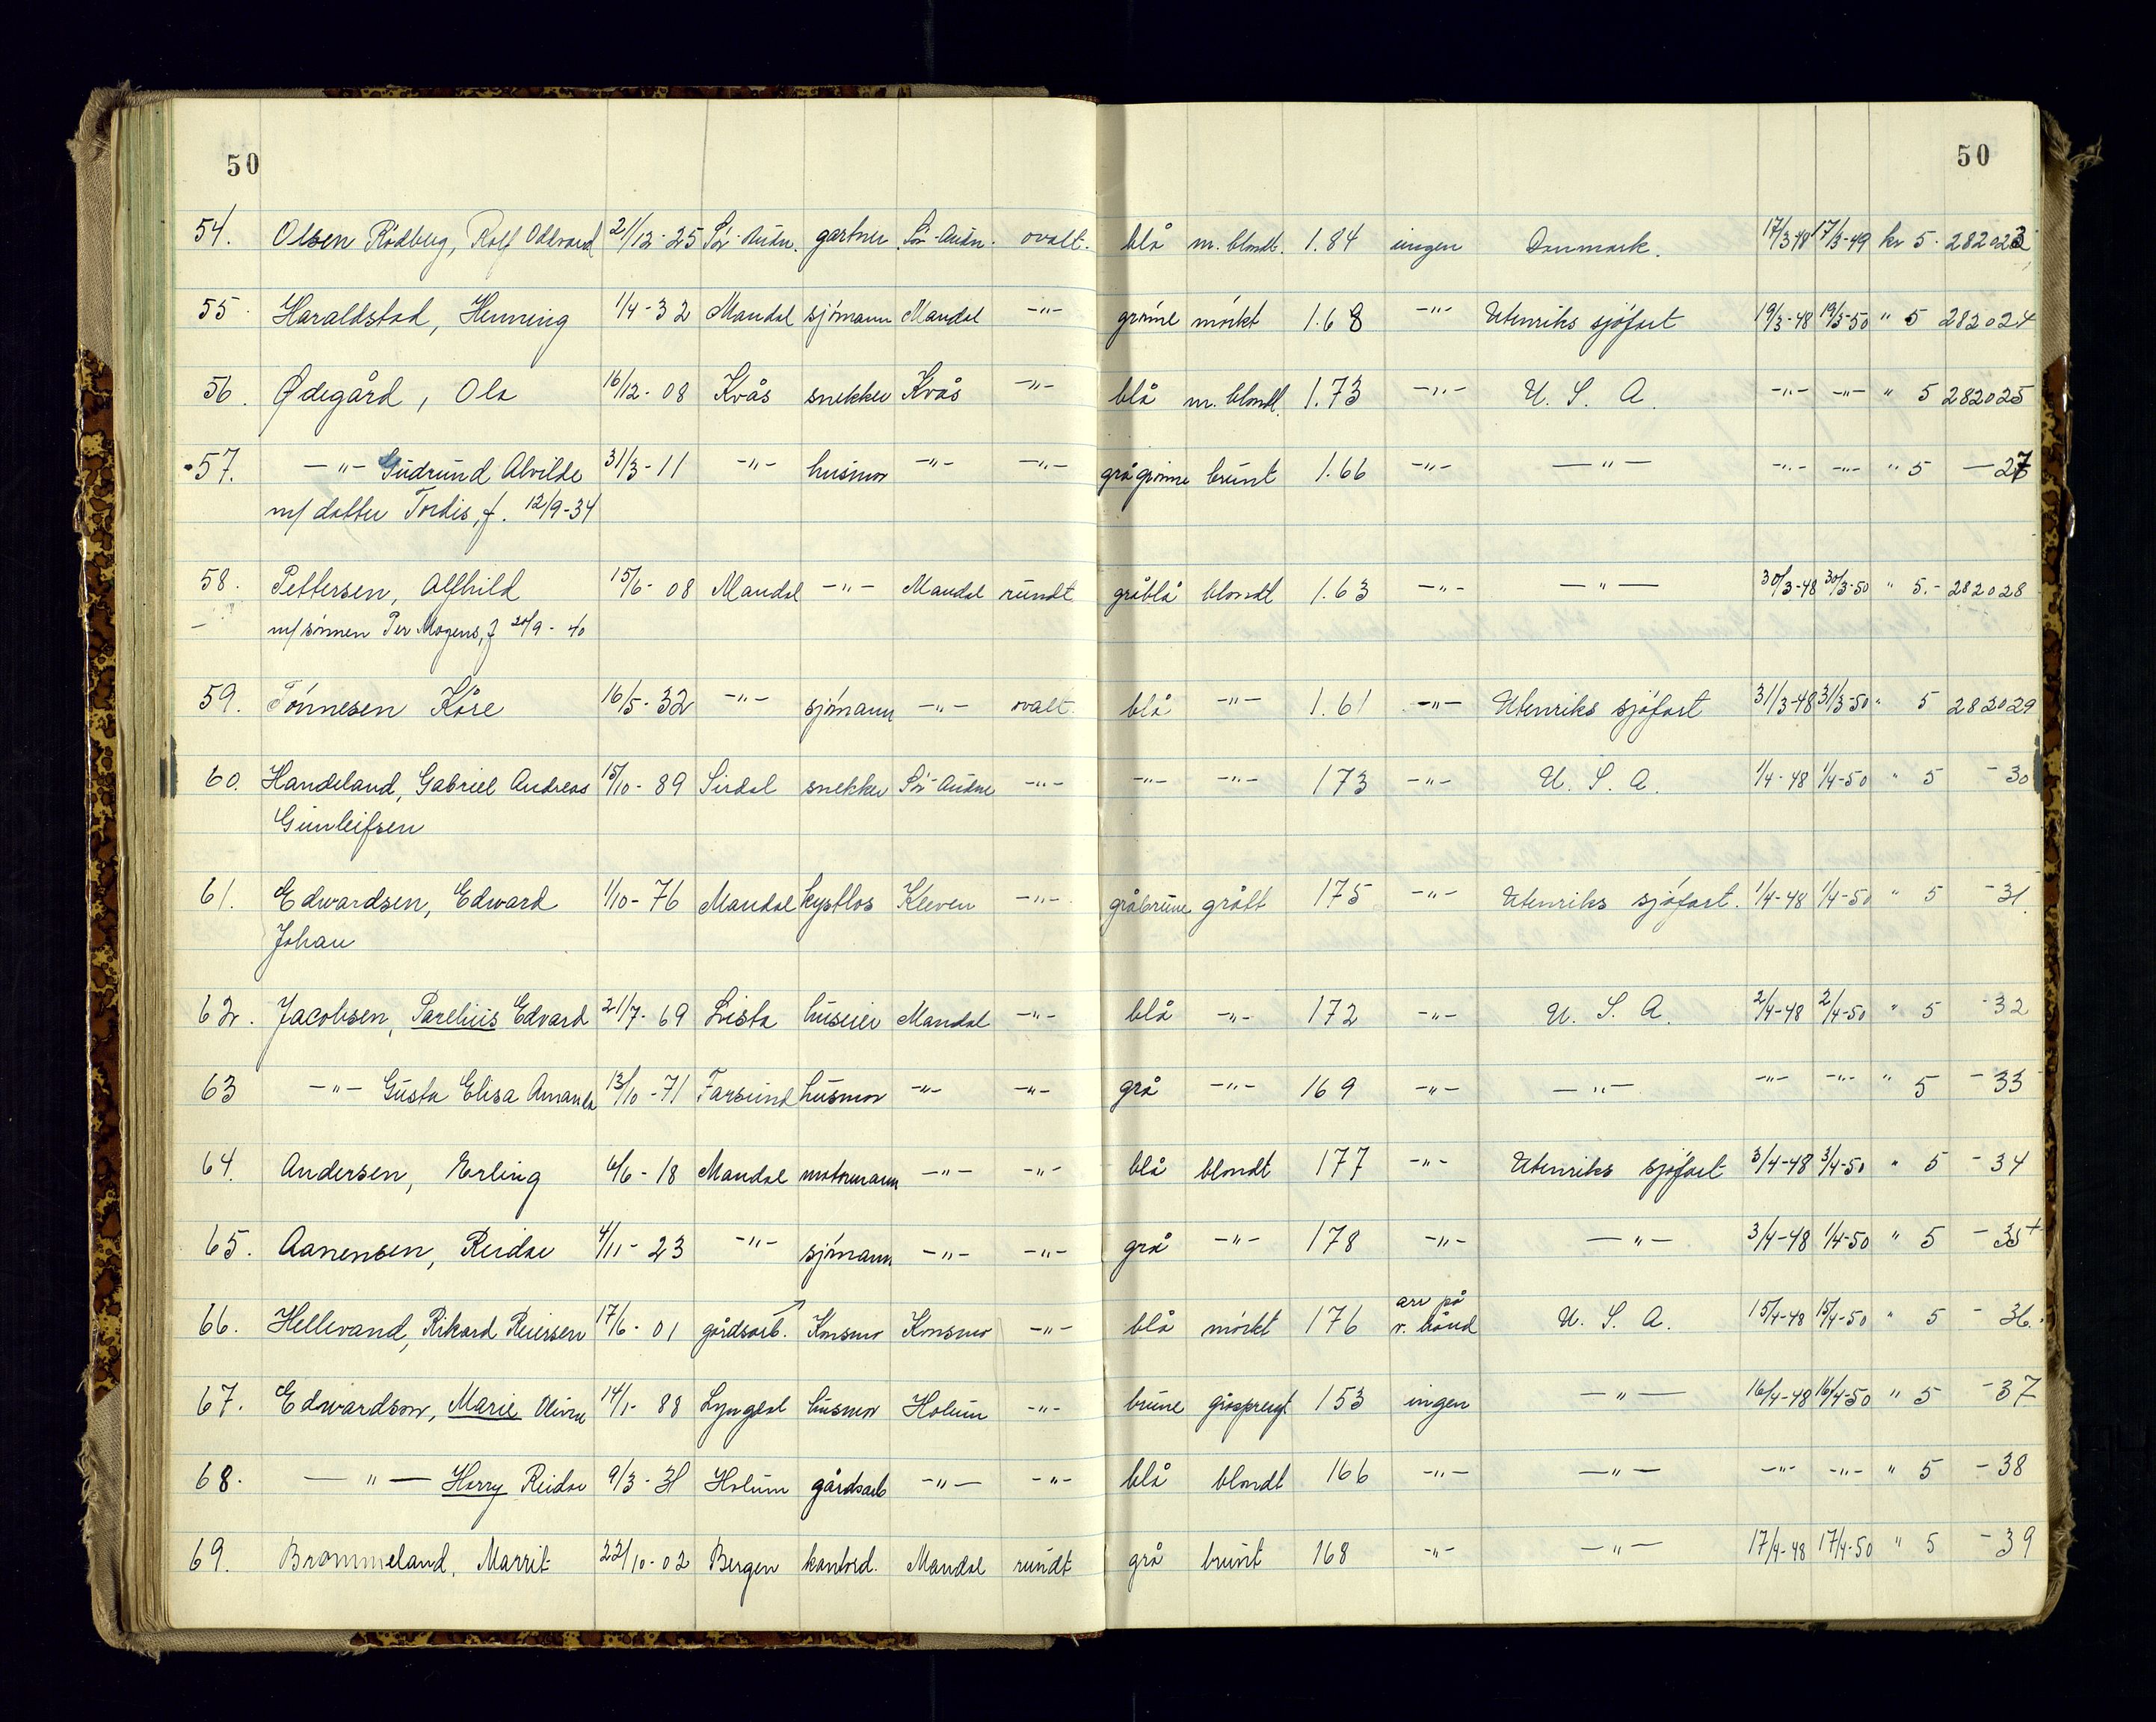 50 50
54. Olsen Rödberg, Rolf Oddvard 21/12-25 Sör-Audn. gartner Sör-Audn. ovalt. blå m. blondt. 1.84 ingen Danmark. 17/3-48 17/3-49 kr 5.- 282023
55. Haraldstad, Henning 1/4-32 Mandal sjömann Mandal -"- grönne mörkt 1.68 -"- Utenriks sjöfart 19/3-48 19/3-50 " 5 282024
56. Ødegård, Ola 16/12-08 Kvås snekker Kvås -"- blå m. blondt. 1.73 -"- U. S. A. -"- -"- " 5 282025
57. -"- Gudrund Alvilde 31/3-11 -"- husmor -"- -"- grågrönne brunt 1.66 -"- -"- -"- -"- " 5 -27
m/ datter Tordis, f. 12/9-34
58. Pettersen, Alfhild 15/6-08 Mandal -"- Mandal rundt gråblå blondt 1.63 -"- -"- 30/3-48 30/3-50 " 5.- 282028
- m/sönnen Per Mogens, f 20/9-40
59. Tönnesen Kåre 16/5-32 -"- sjömann -"- ovalt. blå -"- 1.61 -"- Utenriks sjöfart 31/3-48 31/3-50 " 5 282029
60. Handeland, Gabriel Andreas 15/10-89 Sirdal snekker Sör-Audne -"- -"- -"- 173 -"- U. S. A. 1/4-48 1/4-50 " 5 -30
Gunleifsen
61. Edwardsen, Edward 1/10-76 Mandal kystlos Kleven -"- gråbrune grått 175 -"- Utenriks sjöfart. 1/4-48 1/4-50 " 5 -31.
Johan
62. Jacobsen, Parelius Edvard 21/7-69 Lista huseier Mandal -"- blå -"- 172 -"- U. S. A. 2/4-48 2/4-50 " 5 -32
63 -"- Gusta Elisa Amanda 13/10-71 Farsund husmor -"- -"- grå -"- 169 -"- -"- -"- -"- " 5 -33
64. Andersen, Erling 6/6-18 Mandal motormann -"- -"- blå blondt 177 -"- Utenriks sjöfart 3/4-48 3/4-50 " 5 -34
65. Aanensen, Reidar 4/11-23 -"- sjömann -"- -"- grå -"- 178 -"- -"- 3/4-48 1/4-50 " 5 -35+
66. Hellevand, Rikard Reiersen 17/6-01 gårdsarb. Konsmo Konsmo -"- blå mörkt 176 arr på v. hånd U. S. A. 15/4-48 15/4-50 " 5 -36.
67. Edwardson, Marie Olivine 14/1-88 Lyngdal husmor Holum -"- brune gråsprengt 153 ingen -"- 16/4-48 16/4-50 " 5 -37
68. -"- Harry Reidar 9/3-31 Holum gårdsarb -"- -"- blå blondt 166 -"- -"- -"- -"- " 5 -38
69. Brommeland, Marrit 22/10-02 Bergen kontord. Mandal rundt grå brunt 168 -"- -"- 17/4-48 17/4-50 " 5 -39